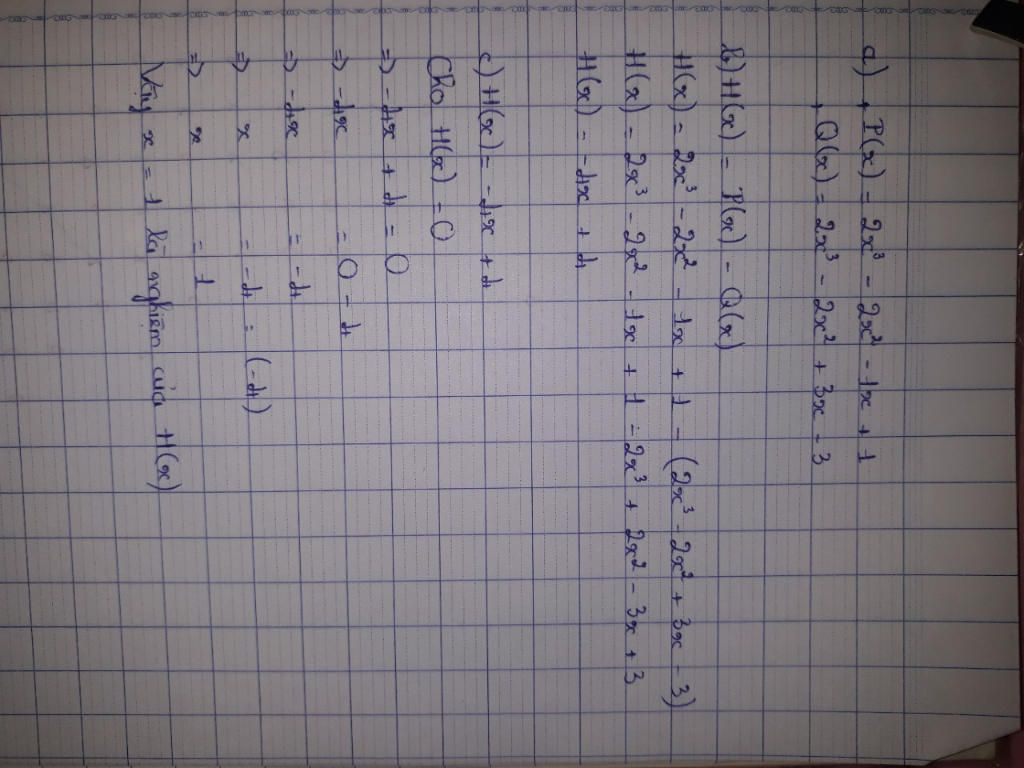 a) + P(x) = 2x³ - 2x² - 1x + 1
+ Q(x) = 2x³ - 2x² + 3x - 3
b) H(x) = P(x) - Q(x)
H(x) = 2x³ - 2x² - 1x + 1 - (2x³ - 2x² + 3x - 3)
H(x) = 2x³ - 2x² - 1x + 1 - 2x³ + 2x² - 3x + 3
H(x) = -4x + 4
c) H(x) = -4x + 4
Cho H(x) = 0
=> -4x + 4 = 0
=> -4x = 0 - 4
=> -4x = -4
=> x = -4 : (-4)
=> x = 1
Vậy x = 1 là nghiệm của H(x)